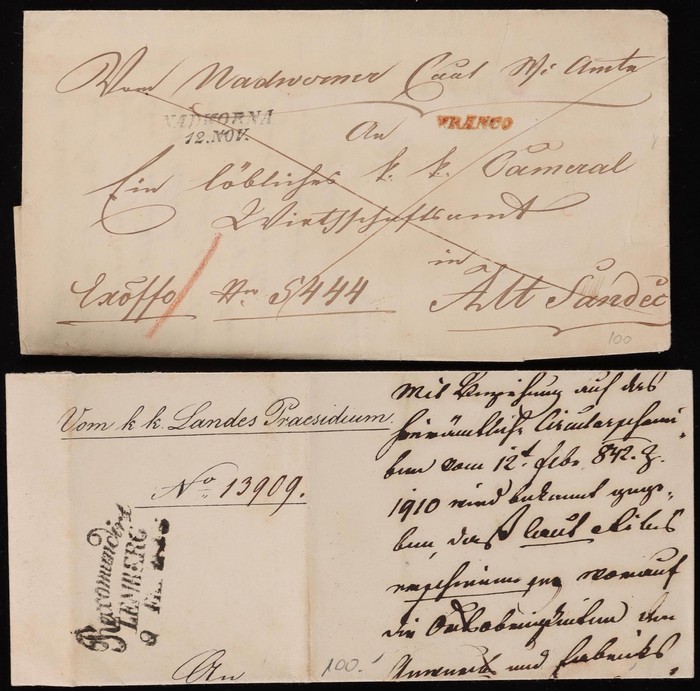 Vom Nadworner Caal W. Amte
NADWORNA
12. NOV.
An
FRANCO
Ein löbliches k. k. Cameral
Wirtschaftsamt
in
Exōffo Nro 5444 Alt Sandec
100
Vom k k. Landes Praesidium.
No 13909.
Recomandirt
LEMBERG
9
An
100.
Mit Beziehung auf das
hierämtliche Circularschrei-
ben vom 12t. Febr. 842. Z.
1910 wird bekannt gege-
ben, daß laut
worauf
die Ortsobrigkeiten den
und Fabriks